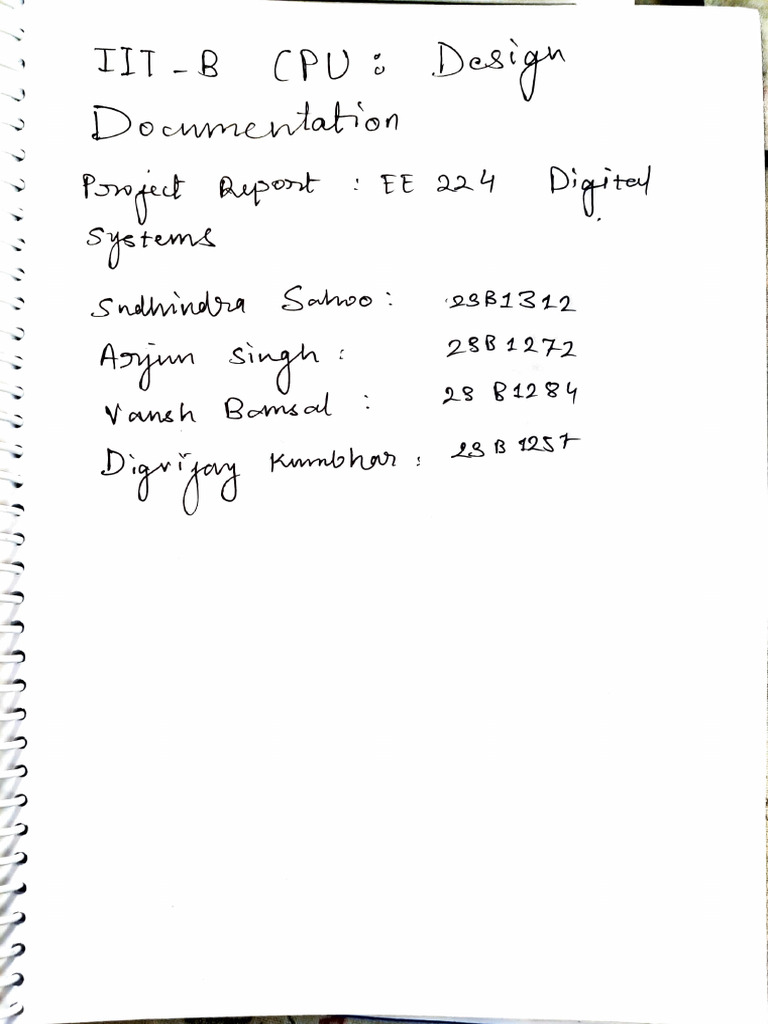 IIT-B CPU: Design
Documentation
Project Report : EE 224 Digital
Systems
Sudhindra Sahoo: 23B1312
Arjun Singh : 23B1272
Vansh Bansal : 23 B1284
Digvijay Kumbhar : 23 B 1257